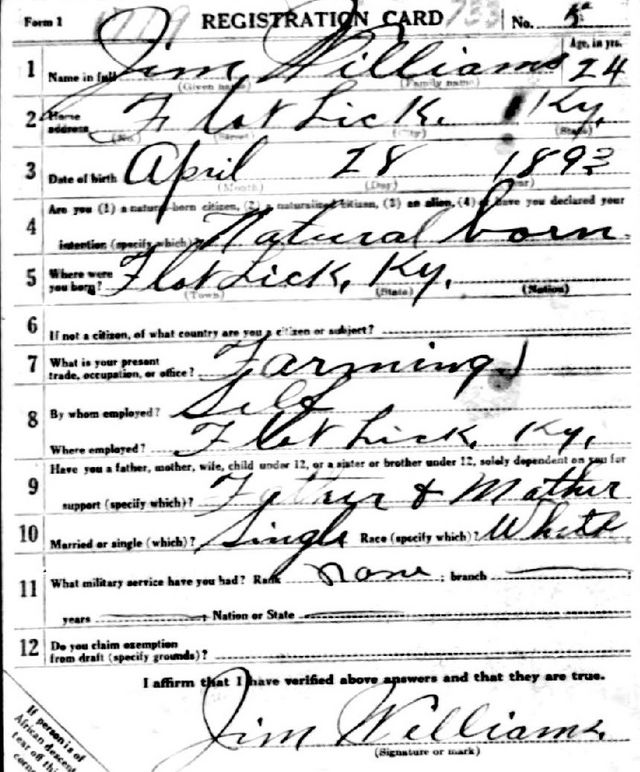 Form 1 1779 REGISTRATION CARD 733 No. 5
1 Name in full Jim Williams Age, in yrs. 24
(Given name) (Family name)
2 Home address Flat Lick. Ky.
(No.) (Street) (City) (State)
3 Date of birth April 28 1893
(Month) (Day) (Year)
Are you (1) a natural-born citizen, (2) a naturalized citizen, (3) an alien, (4) or have you declared your
4 intention (specify which)? Natural born
5 Where were you born? Flat Lick, Ky.
(Town) (State) (Nation)
6 If not a citizen, of what country are you a citizen or subject?
7 What is your present trade, occupation, or office? Farming
8 By whom employed? Self
Where employed? Flat Lick, Ky.
Have you a father, mother, wife, child under 12, or a sister or brother under 12, solely dependent on you for
9 support (specify which)? Father & Mother
10 Married or single (which)? Single Race (specify which)? White
11 What military service have you had? Rank none ; branch ;
years ; Nation or State
12 Do you claim exemption from draft (specify grounds)?
I affirm that I have verified above answers and that they are true.
Jim Williams.
(Signature or mark)
If person is of
African descent
tear off this
corner